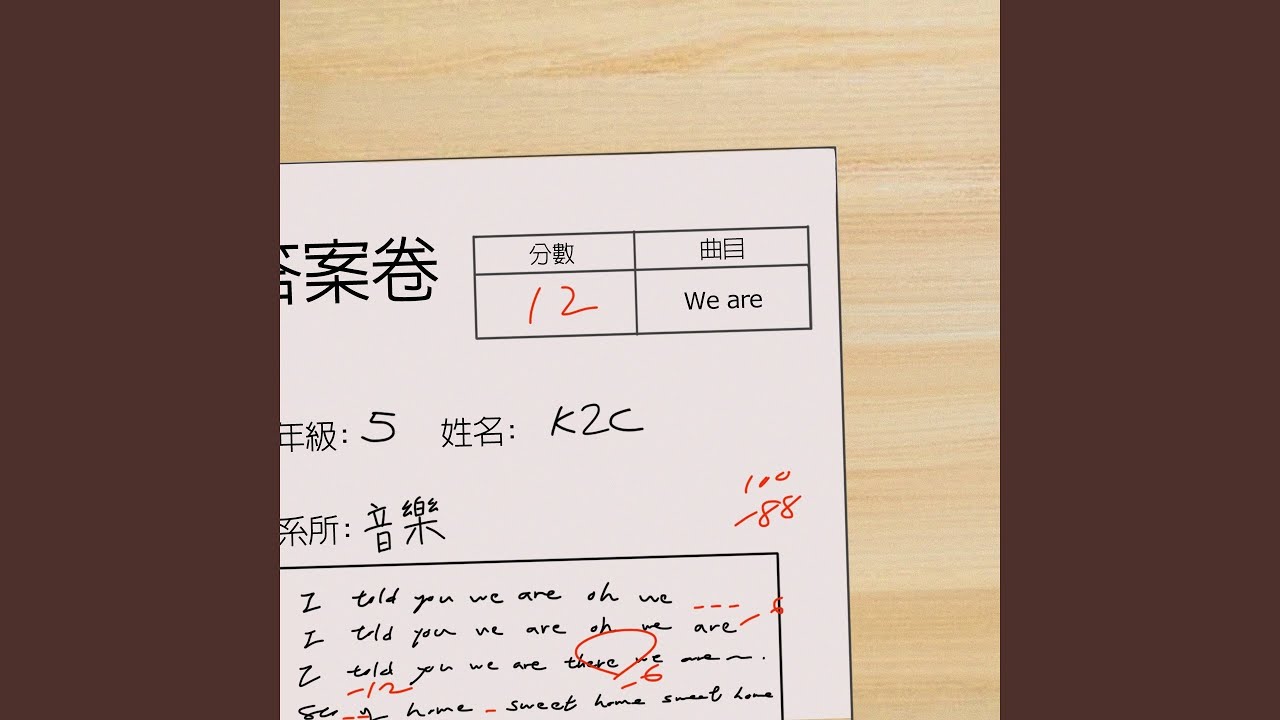 答案卷
分數 曲目
12 We are
年級: 5 姓名: K2C
100
系所: 音樂
-88
I told you we are oh we ---
-8
I told you we are oh we are
I told you we are there we are~.
-6
-12
home - sweet home sweet home